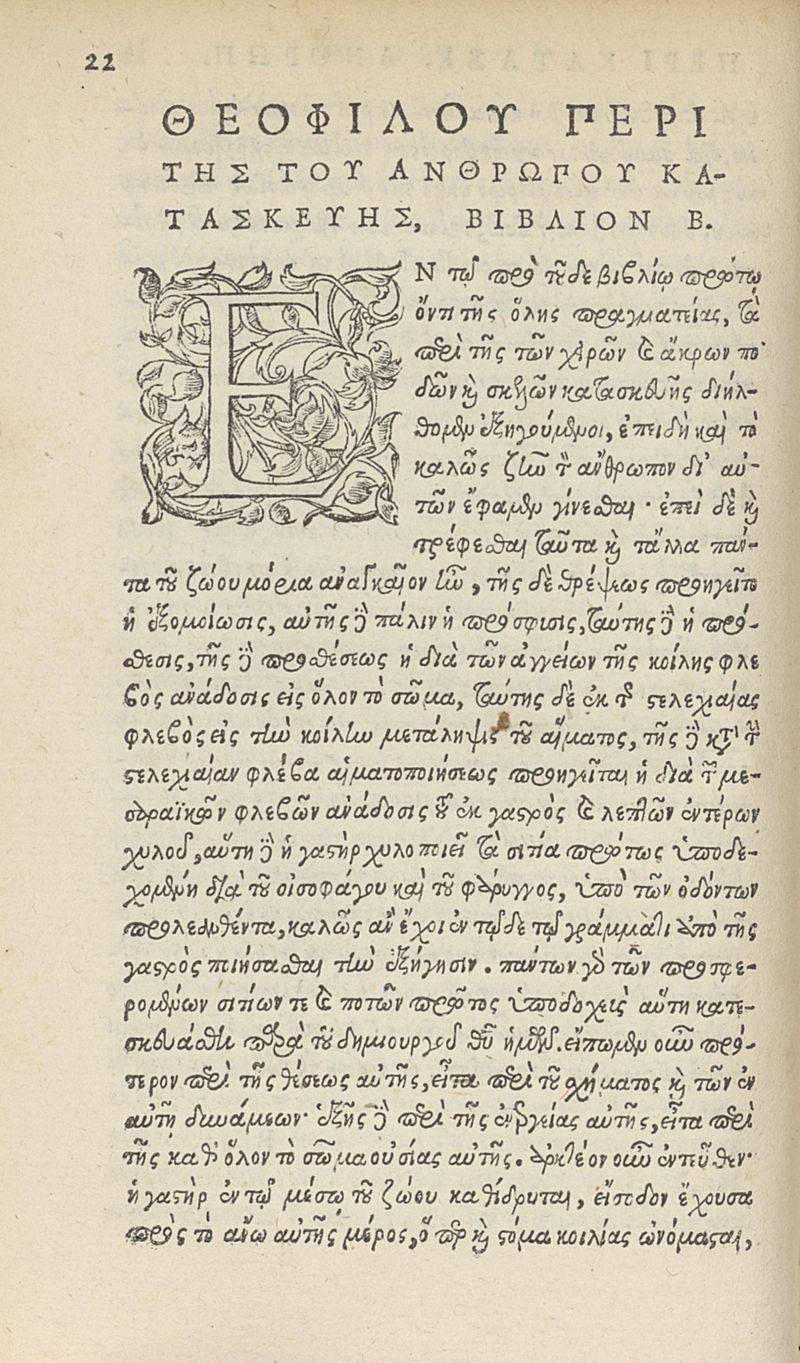 22
ΘΕΟΦΙΛΟΥ ΠΕΡΙ
ΤΗΣ ΤΟΥ ΑΝΘΡΩΠΟΥ ΚΑ-
ΤΑΣΚΕΥΗΣ, ΒΙΒΛΙΟΝ Β.
ΕΝ τῷ πρὸ τοῦδε βιβλίῳ πρώτῳ
ὄντι τῆς ὅλης πραγματείας, τὰ
περὶ τῆς τῶν χειρῶν καὶ ἄκρων πο-
δῶν καὶ σκελῶν κατασκευῆς διήλ-
θομεν ἐξηγούμενοι, ἐπειδὴ καὶ τὸ
καλῶς ζῆν τὸν ἄνθρωπον δι' αὐ-
τῶν ἔφαμεν γίνεσθαι· ἐπεὶ δὲ καὶ
τρέφεσθαι ταῦτα καὶ τἄλλα πάν-
τα τοῦ ζώου μόρια ἀναγκαῖον ἦν, τῆς δὲ θρέψεως προηγεῖτο
ἡ ἐξομοίωσις, αὐτῆς δὲ πάλιν ἡ πρόσφυσις, ταύτης δὲ ἡ πρό-
θεσις, τῆς δὲ προθέσεως ἡ διὰ τῶν ἀγγείων τῆς κοίλης φλε
βὸς ἀνάδοσις εἰς ὅλον τὸ σῶμα, ταύτης δὲ ἐκ τῆς στελεχιαίας
φλεβὸς εἰς τὴν κοίλην μετάληψις τοῦ αἵματος, τῆς δὲ κατὰ τὴν
στελεχιαίαν φλέβα αἱματοποιήσεως προηγεῖται ἡ διὰ τῶν με-
σαραϊκῶν φλεβῶν ἀνάδοσις τοῦ ἐκ γαστρὸς καὶ λεπτῶν ἐντέρων
χυλοῦ, αὕτη δὲ ἡ γαστὴρ χυλοποιεῖ τὰ σιτία πρώτως ὑποδε-
χομένη διὰ τοῦ οἰσοφάγου καὶ τοῦ φάρυγγος, ὑπὸ τῶν ὀδόντων
προλεανθέντα, καλῶς ἂν ἔχοι ἐν τῷδε τῷ γράμματι ἀπὸ τῆς
γαστρὸς ποιήσασθαι τὴν ἐξήγησιν. πάντων γὰρ τῶν προσφε-
ρομένων σιτίων τε καὶ ποτῶν πρῶτος ὑποδοχεὺς αὕτη κατε-
σκευάσθη παρὰ τοῦ δημιουργοῦ θεοῦ ἡμῶν. εἴπωμεν οὖν πρό-
τερον περὶ τῆς θέσεως αὐτῆς, εἶτα περὶ τοῦ σχήματος καὶ τῶν ἐν
αὐτῇ δυνάμεων· ἑξῆς δὲ περὶ τῆς ἐνεργείας αὐτῆς, εἶτα περὶ
τῆς καθ' ὅλον τὸ σῶμα οὐσίας αὐτῆς. ἀρκτέον οὖν ἐντεῦθεν·
ἡ γαστὴρ ἐν τῷ μέσῳ τοῦ ζώου καθίδρυται, εἴσοδον ἔχουσα
πρὸς τὸ ἄνω αὐτῆς μέρος, ὅπερ καὶ στόμα κοιλίας ὠνόμασται,